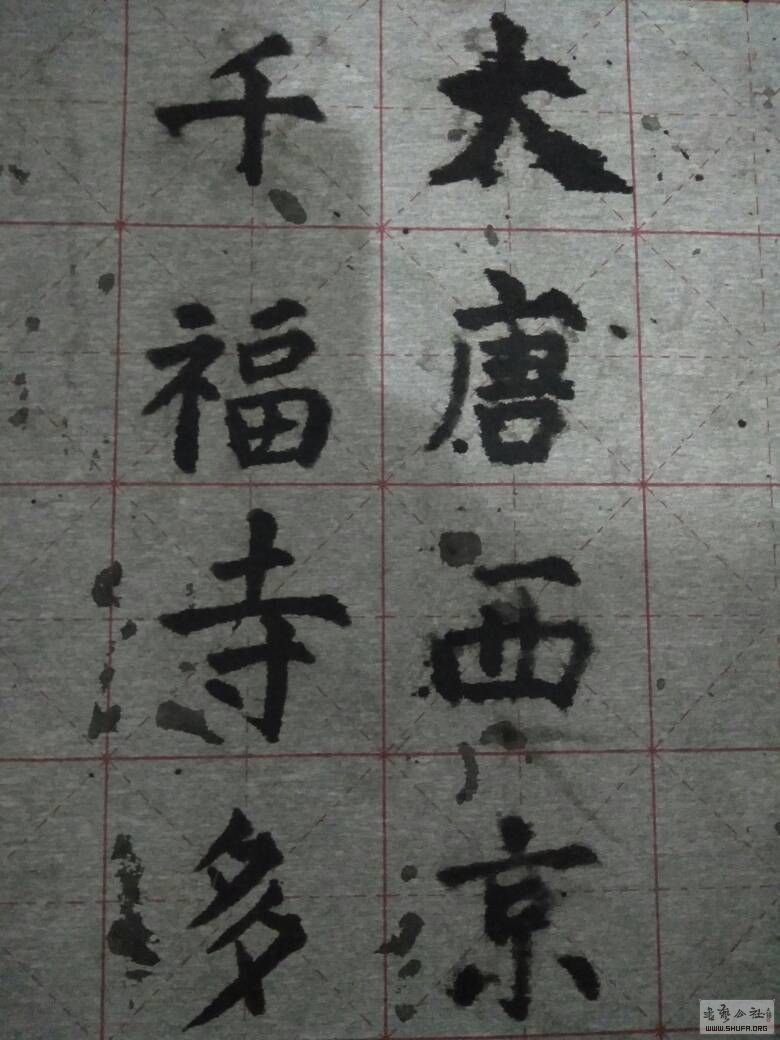 大唐西京
千福寺多
WWW.SHUFA.ORG